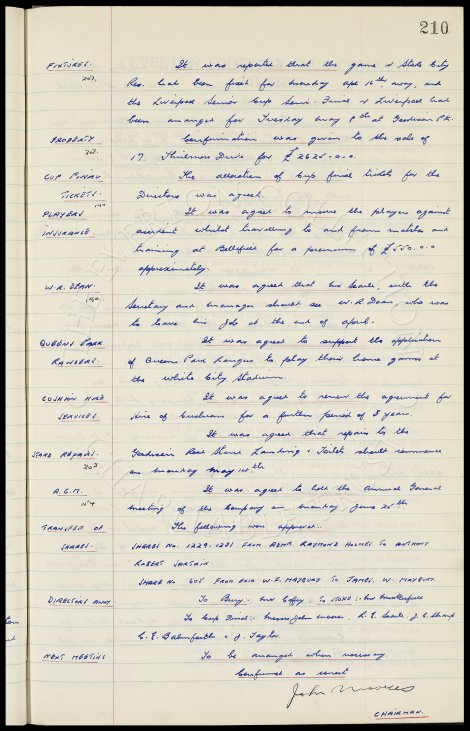 210
FIXTURES. It was reported that the game v Stoke City
Res. had been fixed for Monday Apl 16th, away, and
the Liverpool Senior Cup Semi-Final v Liverpool had
been arranged for Tuesday May 8th at Goodison Pk.
PROPERTY Confirmation was given to the sale of
17, Thirlmere Drive for £2625.0.0.
CUP FINAL The allocation of Cup final tickets for the
TICKETS. Directors was agreed.
PLAYERS It was agreed to insure the players against
INSURANCE. accident whilst travelling to and from matches and
training at Bellefield for a premium of £550.0.0
approximately.
W.R. DEAN It was agreed that Mr Searle, with the
Secretary and Manager should see W.R. Dean, who was
to leave his job at the end of April.
QUEENS PARK It was agreed to support the application
RANGERS. of Queens Park Rangers to play their home games at
the White City Stadium.
CUSHION HIRE It was agreed to renew the agreement for
SERVICES hire of cushions for a further period of 3 years.
It was agreed that repairs to the
STAND REPAIRS. Goodison Road Stand Landing & Toilets should commence
203
on Monday May
A.G.M. It was agreed to hold the Annual General
154
Meeting of the Company on Monday, June
TRANSFER OF The following were approved:-
SHARES. SHARES No. 1229-1231 FROM ADMR RAYMOND HOLMES TO ANTHONY
ROBERT SARTAIN.
SHARE No 605 FROM EXIX W.F. MAYBURY TO JAMES. W. MAYBURY.
DIRECTORS AWAY To Bury: Mr Coffey; To STOKE:- Mr Micklesfield
To Cup Final: Messrs John Moores, R.E. Searle, J.C. Sharp
C.E. Balmforth & J. Taylor.
NEXT MEETING To be arranged when necessary.
Confirmed as correct
John Moores
CHAIRMAN.